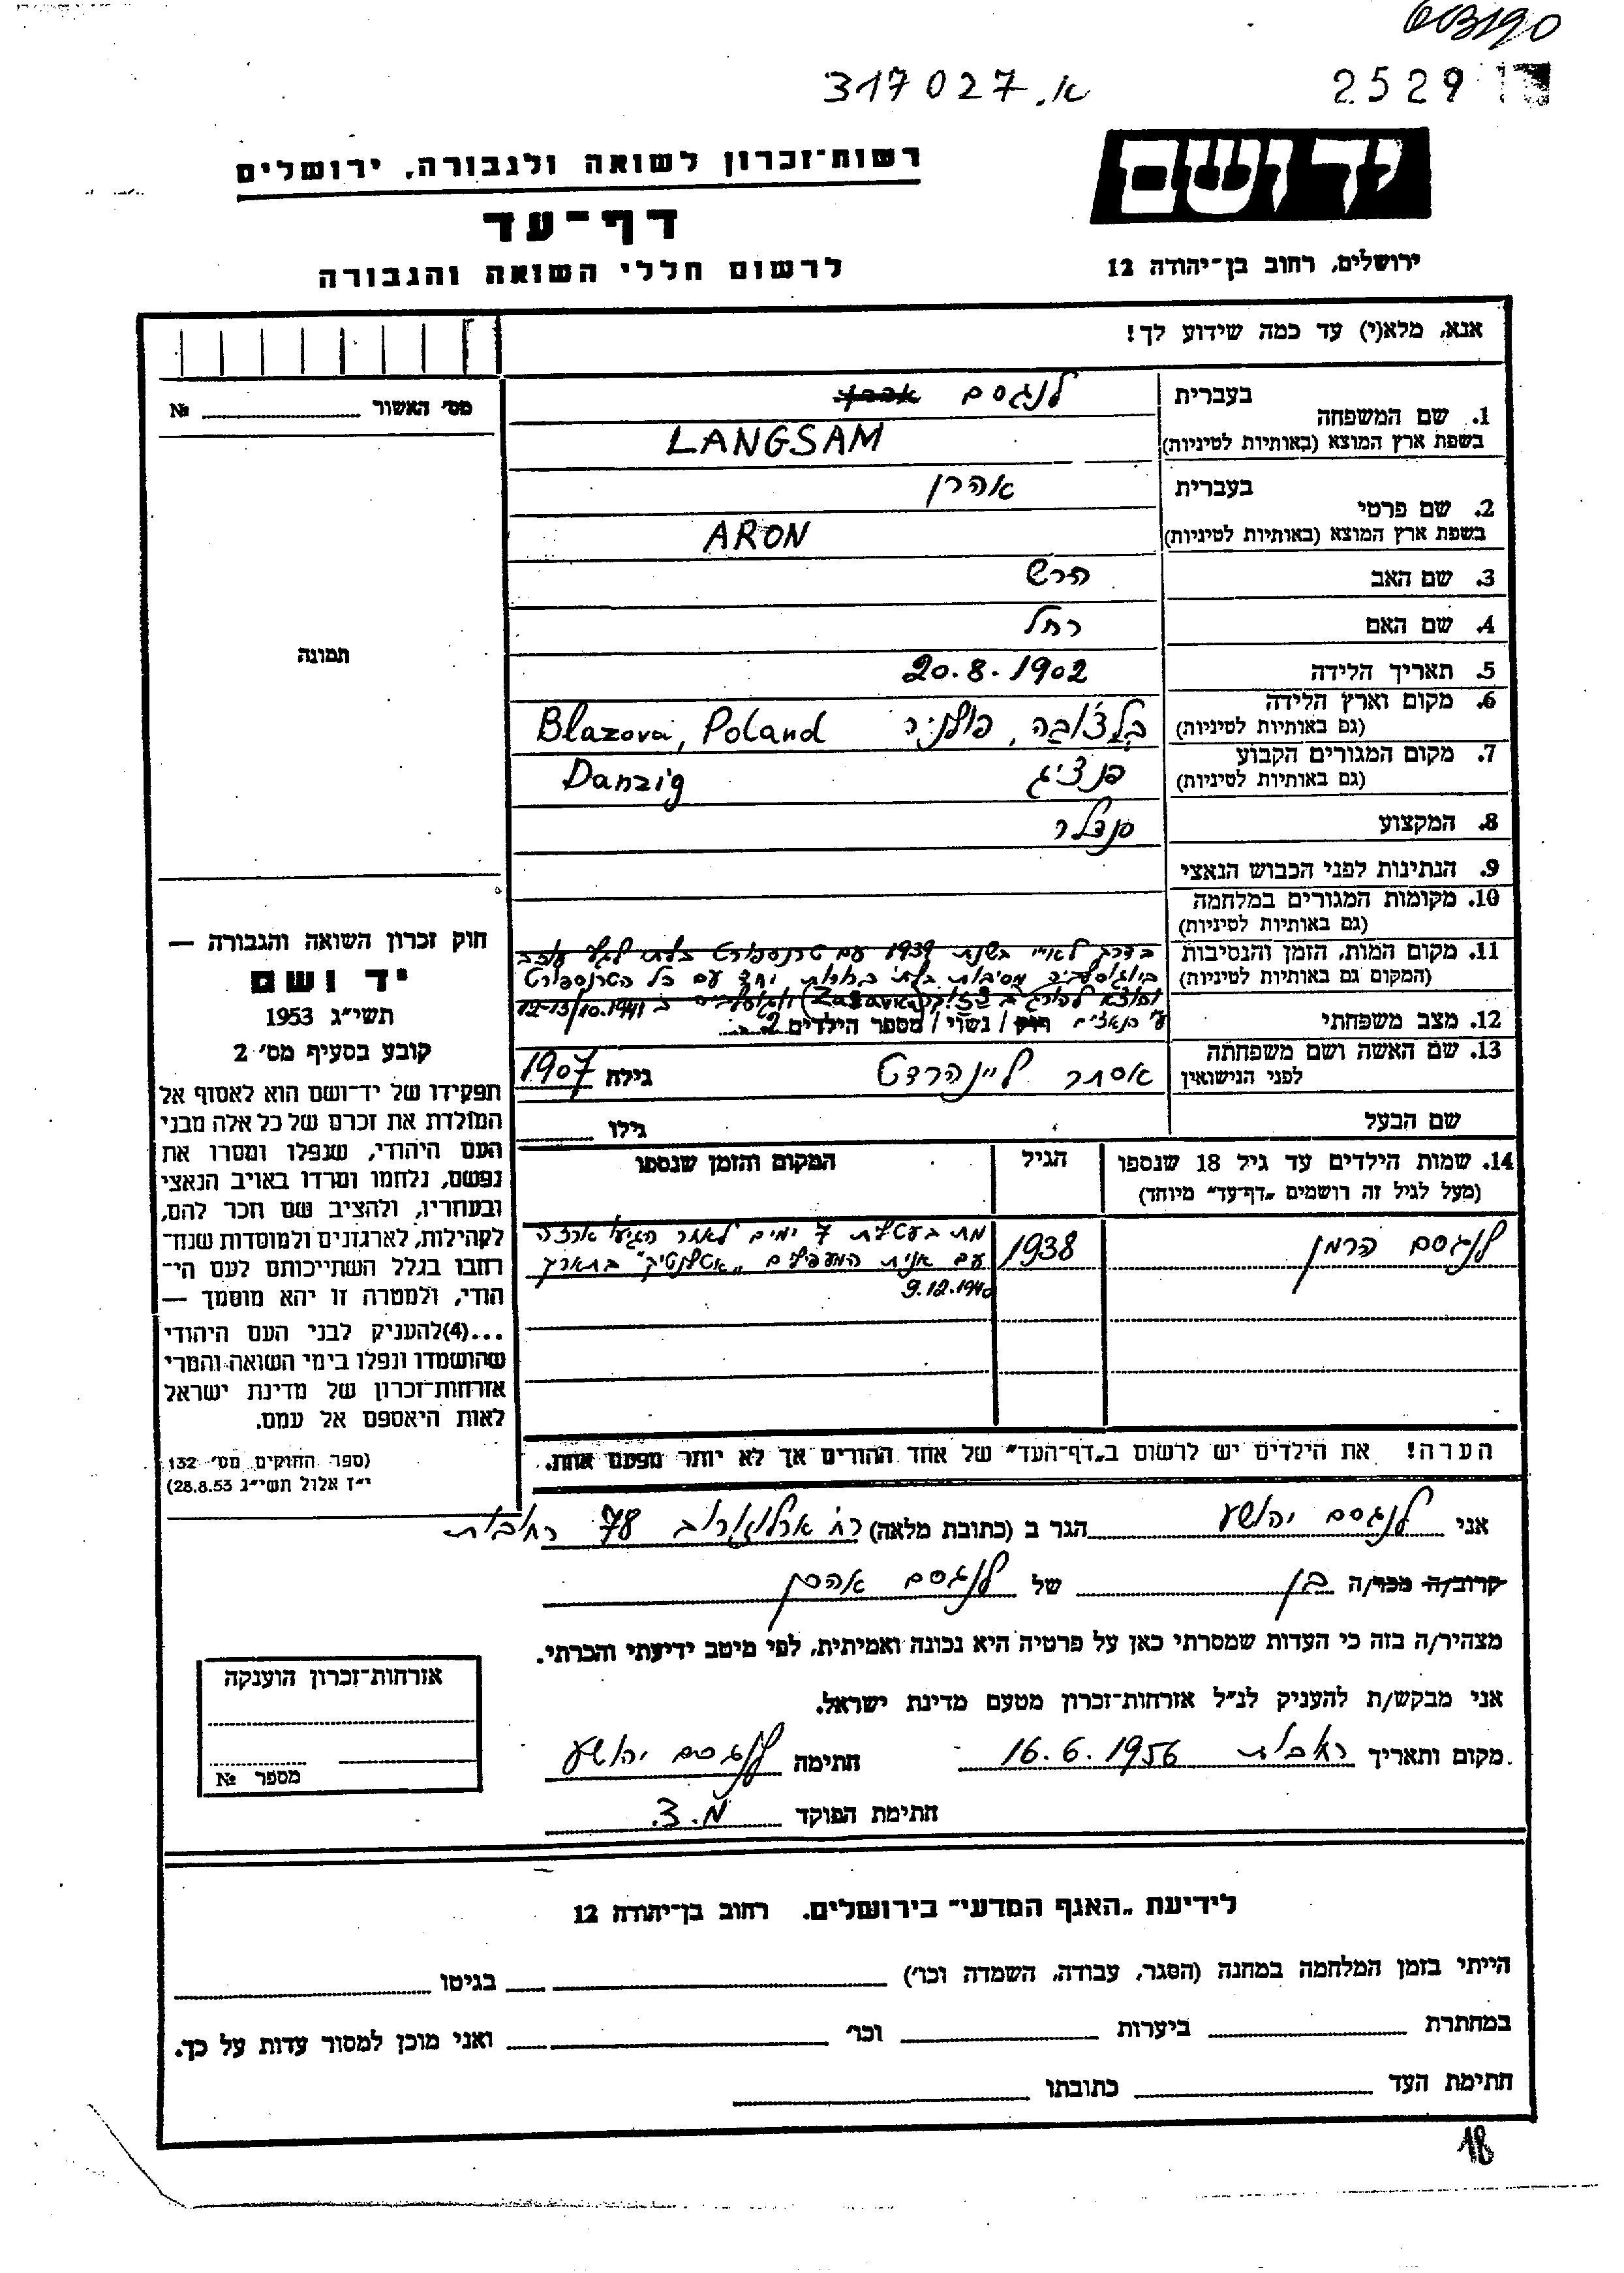 603190
317027.א
2529
יד ושם
רשות־זכרון לשואה ולגבורה, ירושלים
דף־עד
לרשום חללי השואה והגבורה
ירושלים, רחוב בן־יהודה 12
אנא, מלא(י) עד כמה שידוע לך!
מס׳ האשור № 
תמונה
1. שם המשפחה
בעברית לנגסם
בשפת ארץ המוצא (באותיות לטיניות) LANGSAM
2. שם פרטי
בעברית אהרן
בשפת ארץ המוצא (באותיות לטיניות) ARON
3. שם האב הרש
4. שם האם רחל
5. תאריך הלידה 20.8.1902
6. מקום וארץ הלידה
(גם באותיות לטיניות) בלצ'ובה, פולניה Blazova, Poland
7. מקום המגורים הקבוע
(גם באותיות לטיניות) דנציג Danzig
8. המקצוע סנדלר
9. הנתינות לפני הכבוש הנאצי
10. מקומות המגורים במלחמה
(גם באותיות לטיניות)
11. מקום המות, הזמן והנסיבות
(המקום גם באותיות לטיניות)
בדרך לא"י בשנת 1939 עם טרנספורט בלתי לגלי עוכב
ביוגוסלביה מסיבות בלתי ברורות יחד עם כל הטרנספורט
והוצא להורג ב (Zasavka) יוגוסלביה ב 12-13/10.1941
ע"י הנאצים
12. מצב משפחתי רוק / נשוי / מספר הילדים 2
13. שם האשה ושם משפחתה
לפני הנישואין אסתר ליינהרדט גילה 1907
שם הבעל גילו
14. שמות הילדים עד גיל 18 שנספו
(מעל לגיל זה רושמים „דף־עד” מיוחד)
הגיל
המקום והזמן שנספו
לנגסם הרמן
1938
מת בעטלית 7 ימים לאחר הגיעו ארצה
עם אנית המעפילים „אטלנטיק” בתאריך
9.12.1940
הערה! את הילדים יש לרשום ב„דף־העד” של אחד ההורים אך לא יותר מפעם אחת.
חוק זכרון השואה והגבורה —
יד ושם
תשי״ג 1953
קובע בסעיף מס׳ 2
תפקידו של יד־ושם הוא לאסוף אל
המולדת את זכרם של כל אלה מבני
העם היהודי, שנפלו ומסרו את
נפשם, נלחמו ומרדו באויב הנאצי
ובעוזריו, ולהציב שם וזכר להם,
לקהילות, לארגונים ולמוסדות שנח־
רבו בגלל השתייכותם לעם הי־
הודי, ולמטרה זו יהא מוסמך —
...(4) להעניק לבני העם היהודי
שהושמדו ונפלו בימי השואה והמרי
אזרחות־זכרון של מדינת ישראל
לאות היאספם אל עמם.
(ספר החוקים מס׳ 132
י״ז אלול תשי״ג 28.8.53)
אני לנגסם יהושע הגר ב (כתובת מלאה) רח' ארלוזורוב 78 רחובות
קרוב/ה מכר/ה בן של לנגסם אהרן
מצהיר/ה בזה כי העדות שמסרתי כאן על פרטיה היא נכונה ואמיתית, לפי מיטב ידיעתי והכרתי.
אני מבקש/ת להעניק לנ״ל אזרחות־זכרון מטעם מדינת ישראל.
מקום ותאריך רחובות 16.6.1956 חתימה לנגסם יהושע
חתימת הפוקד מ.צ.
אזרחות־זכרון הוענקה
מספר №
לידיעת „האגף המדעי” בירושלים. רחוב בן־יהודה 12
הייתי בזמן המלחמה במחנה (הסגר, עבודה, השמדה וכו׳) בגיטו
במחתרת ביערות וכו׳ ואני מוכן למסור עדות על כך.
חתימת העד כתובתו
18